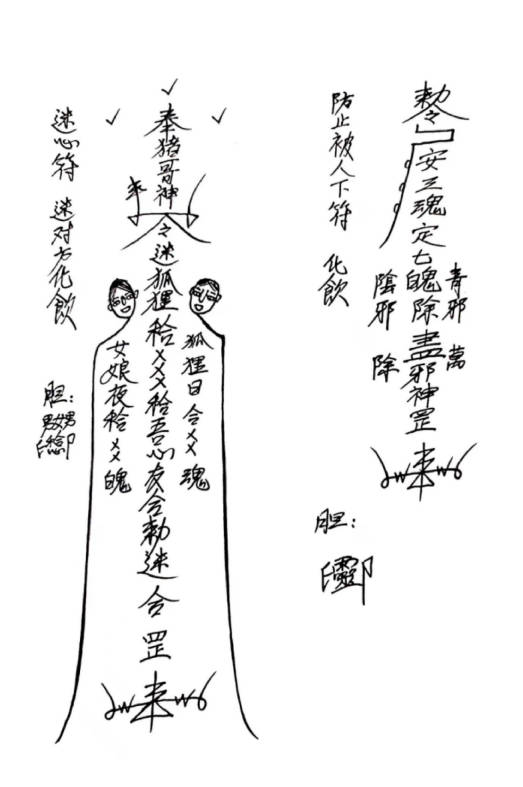 防止被人下符 化飲
敕令
安三魂定七魄除盡邪神罡
青邪萬
陰邪除
胆：
迷心符 迷对方化飲
奉猪哥神
令迷狐狸𥞩××
×𥞩吾心友合勅迷合罡
狐狸日合××魂
女娘夜𥞩××魄
胆：